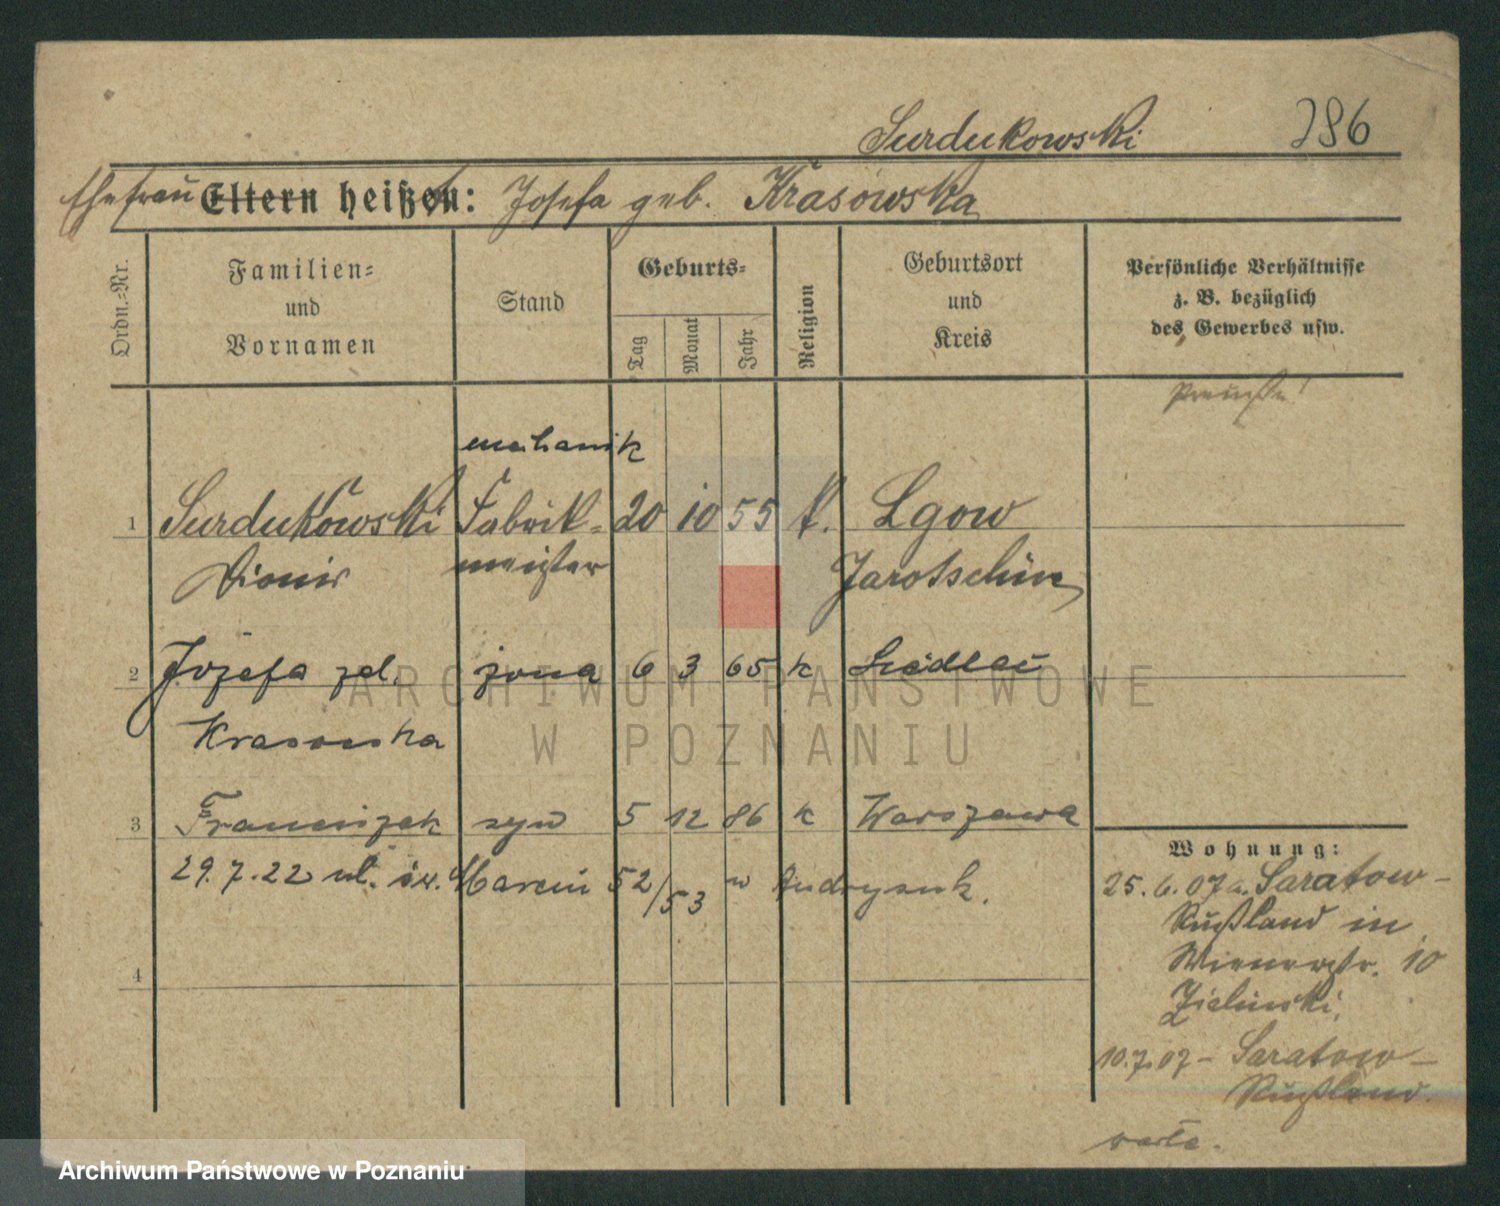 Surdukowski 286
Ehefrau Eltern heißen: Josefa geb. Krasowska
Ordn.-Nr.
Familien-
und
Vornamen
Stand
Geburts-
Tag
Monat
Jahr
Religion
Geburtsort
und
Kreis
Persönliche Verhältnisse
z. B. bezüglich
des Gewerbes usw.
Preuße!
mechanik
1 Surdukowski Fabrik- 20 10 55 k. Lgow
Dionis meister Jarotschin
2 Jozefa zd. żona 6 3 65 k
Krasowska
3 Franciszek syn 5 12 86 k Warszawa
29.7.22 ul. św. Marcin 52/53 w
4
Wohnung:
25.6.07 a. Saratow-
Rußland in
Wienerstr. 10
Zielinski.
10.7.07 - Saratow-
Rußland.
ARCHIWUM PAŃSTWOWE
W POZNANIU
Archiwum Państwowe w Poznaniu